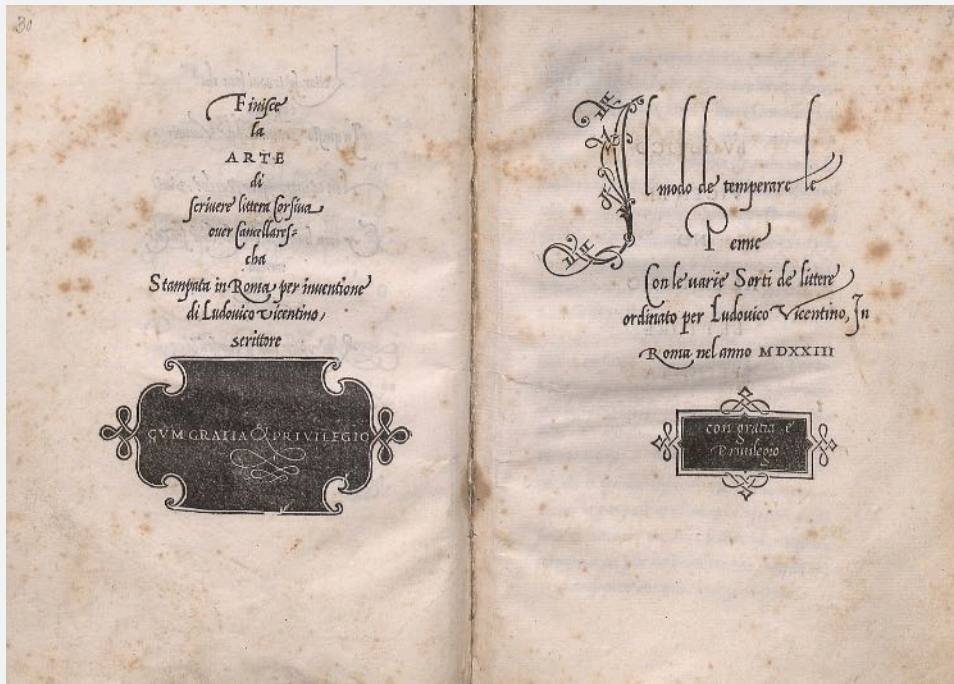 30
Finisce
la
ARTE
di
scrivere littera Corsiva
over Cancellares=
cha
Stampata in Roma per inventione
di Ludovico vicentino,
scrittore
CVM GRATIA & PRIVILEGIO
Il modo de temperare le
Penne
Con le varie Sorti de littere
ordinato per Ludovico Vicentino, In
Roma nel anno MDXXIII
con gratia e
Privilegio